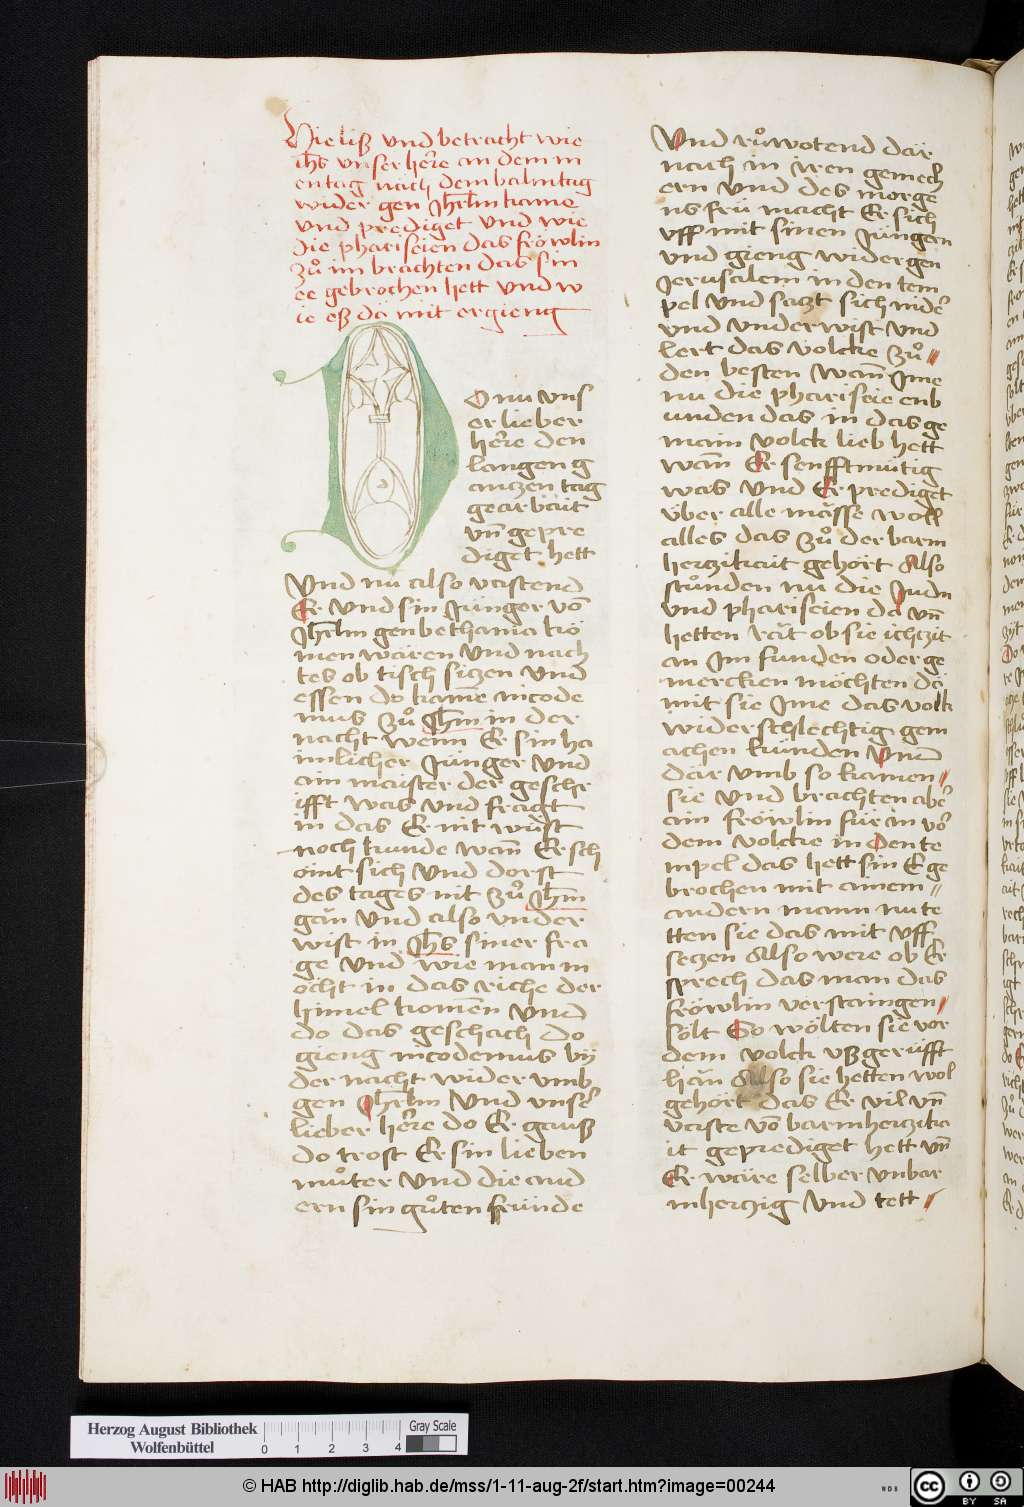 Hie liß vnd betracht wie
ihs vnser here an dem m
entag nach dem balmtag
wider gen Jhrlm kame
vnd prediget vnd wie
die phariseien das fröwlin
zů im brachten das sin
ee gebrochen hett vnd w
ie eß dä mit ergieng
DO nu vns
er lieber
here den
langen g
antzen tag
gearbait
vn̄ gepre
diget hett
Vnd nu also vastend
Er vnd sin Jünger võ
Jhrlm gen bethania kö
men wären vnd nach
tes ob tisch sitzen vnd
essen do kame nicode
mus zů Jhm in der
nacht wenn Er sin ha
imlicher Jünger vnd
ain maister der geschr
ifft was vnd fragt
in das Er nit wüst
noch kunde wan̄ Er sch
amt sich vnd dorst
des tages nit zů Jhm
gän vnd also vnder
wist in Jhs siner fra
ge vnd wie man m
öcht in das riche der
himel komen vnd
do das geschach do
gieng nicodemus by
der nacht wider vmb
gen Jhrlm vnd vnser
lieber here do Er gauß
do trost Er sin lieben
můter vnd die and
ern sin gůten fründe
Vnd růwotend dar
nach in iren gemech
ern vnd des morge
ns frü macht Er sich
vff mit sinen Jüngen
vnd gieng wider gen
Jerusalem in den tem
pel vnd satzt sich nider
vnd vnderwist vnd
lert das volcke zů
den besten wan̄ Jme
nu die phariseie enb
unden das in das ge
main volck lieb hett
wan̄ Er senfftmütig
was vnd Er prediget
vber alle mässe woll
alles das zů der barm
hertzikait gehört Also
stůnden nu die Judn
vnd phariseien da vn̄
hetten rät ob sie ichtzit
an Jm funden oder ge
mercken möchten dä
mit sie Jme das volk
widerschlechtig gem
achen kunden Vnd
dar vmb so kamen
sie vnd brachten aber
ain fröwlin für in vor
dem volcke in den te
mpel das hett sin E ge
brochen mit ainem
andern mann nu te
tten sie das mit vff
setzen Also were ob Er
sprech das man das
fröwlin verstaingen
sölt So wölten sie vor
dem volck vßgerüfft
hän Also sie hetten wol
gehört das Er vil vn̄
vaste võ barmhertzika
it geprediget hett vn̄
Er wäre selber vnbar
mhertzig vnd tett
Herzog August Bibliothek
Wolfenbüttel
0 1 2 3 4
Gray Scale
© HAB http://diglib.hab.de/mss/1-11-aug-2f/start.htm?image=00244
WDB
cc BY SA